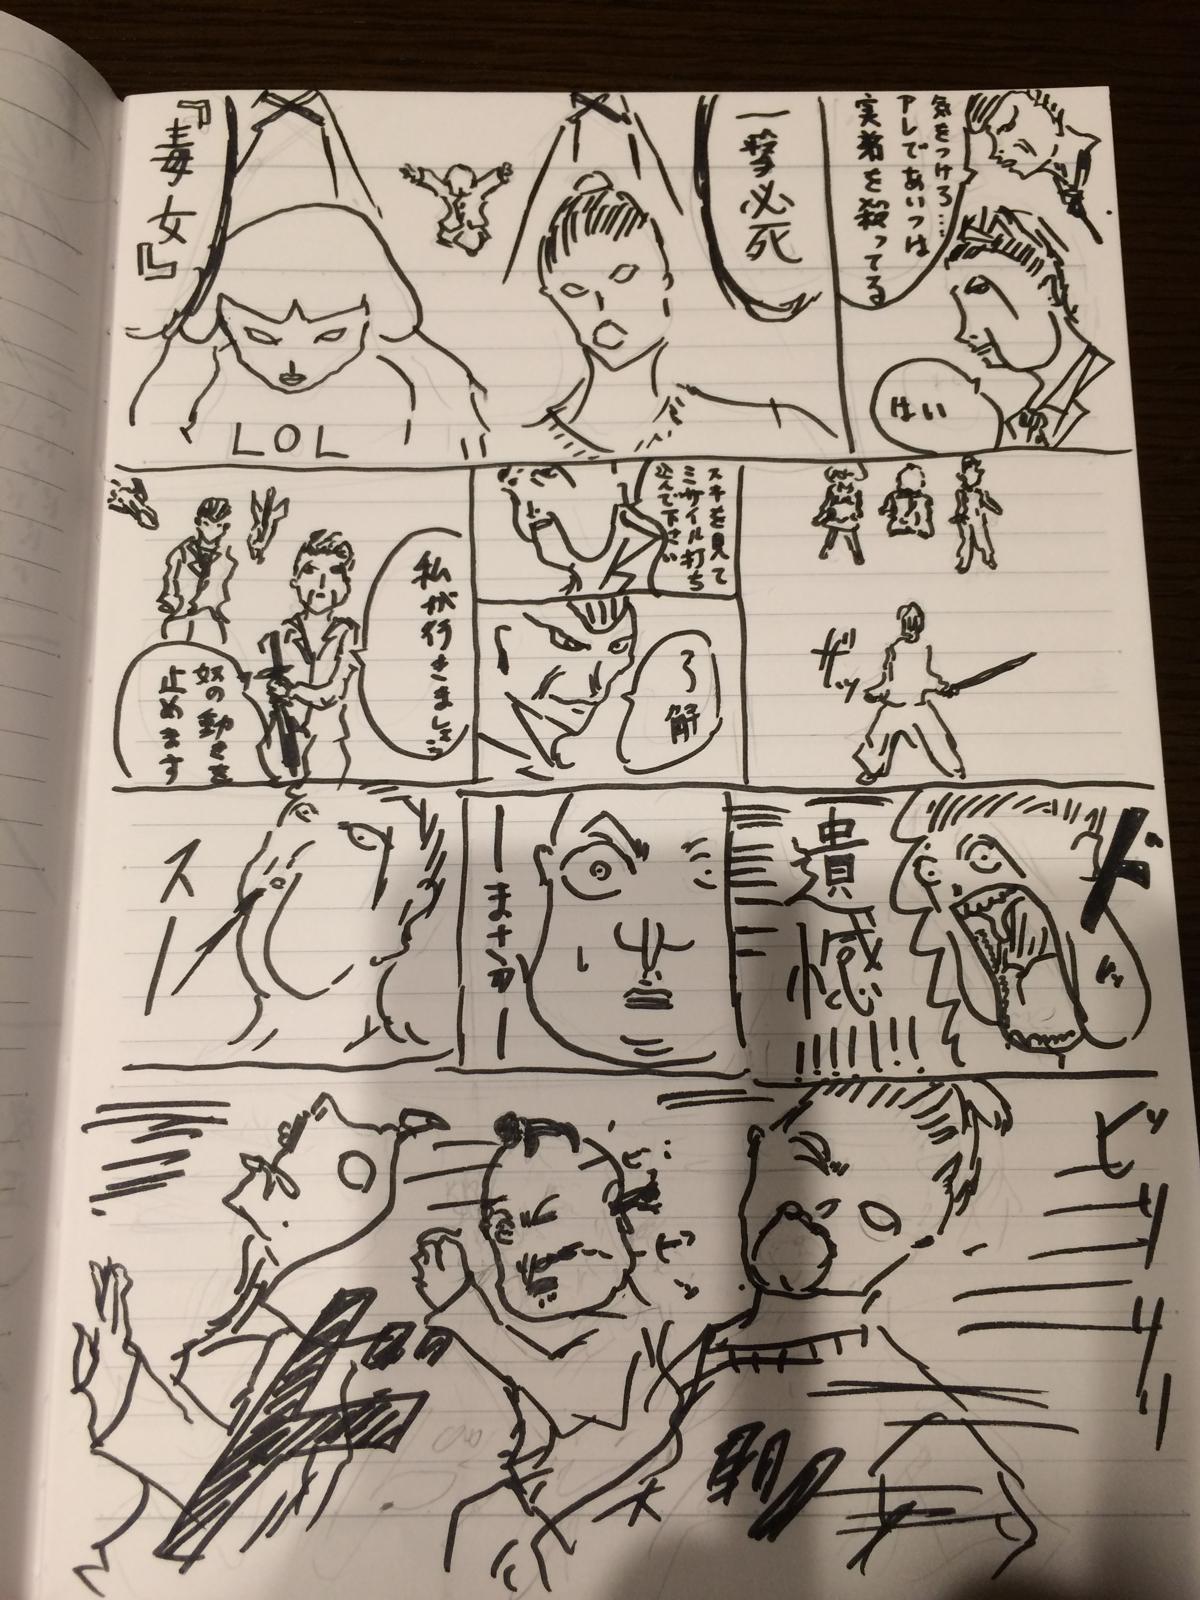 気をつけろ…
アレであいつは
実弟を殺ってる
はい
一撃必死
『毒女』
LOL
ザッ
スキを見て
ミサイル打ち
込んで下さい
了解
私が行きましょう
奴の動きを
止めます
ド
遺憾
!!!!!!!
ーまっすぐー
スー
ビリリリッ